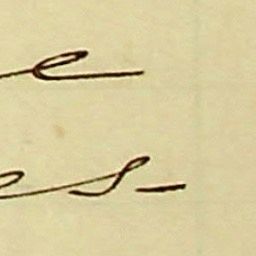 e
es-